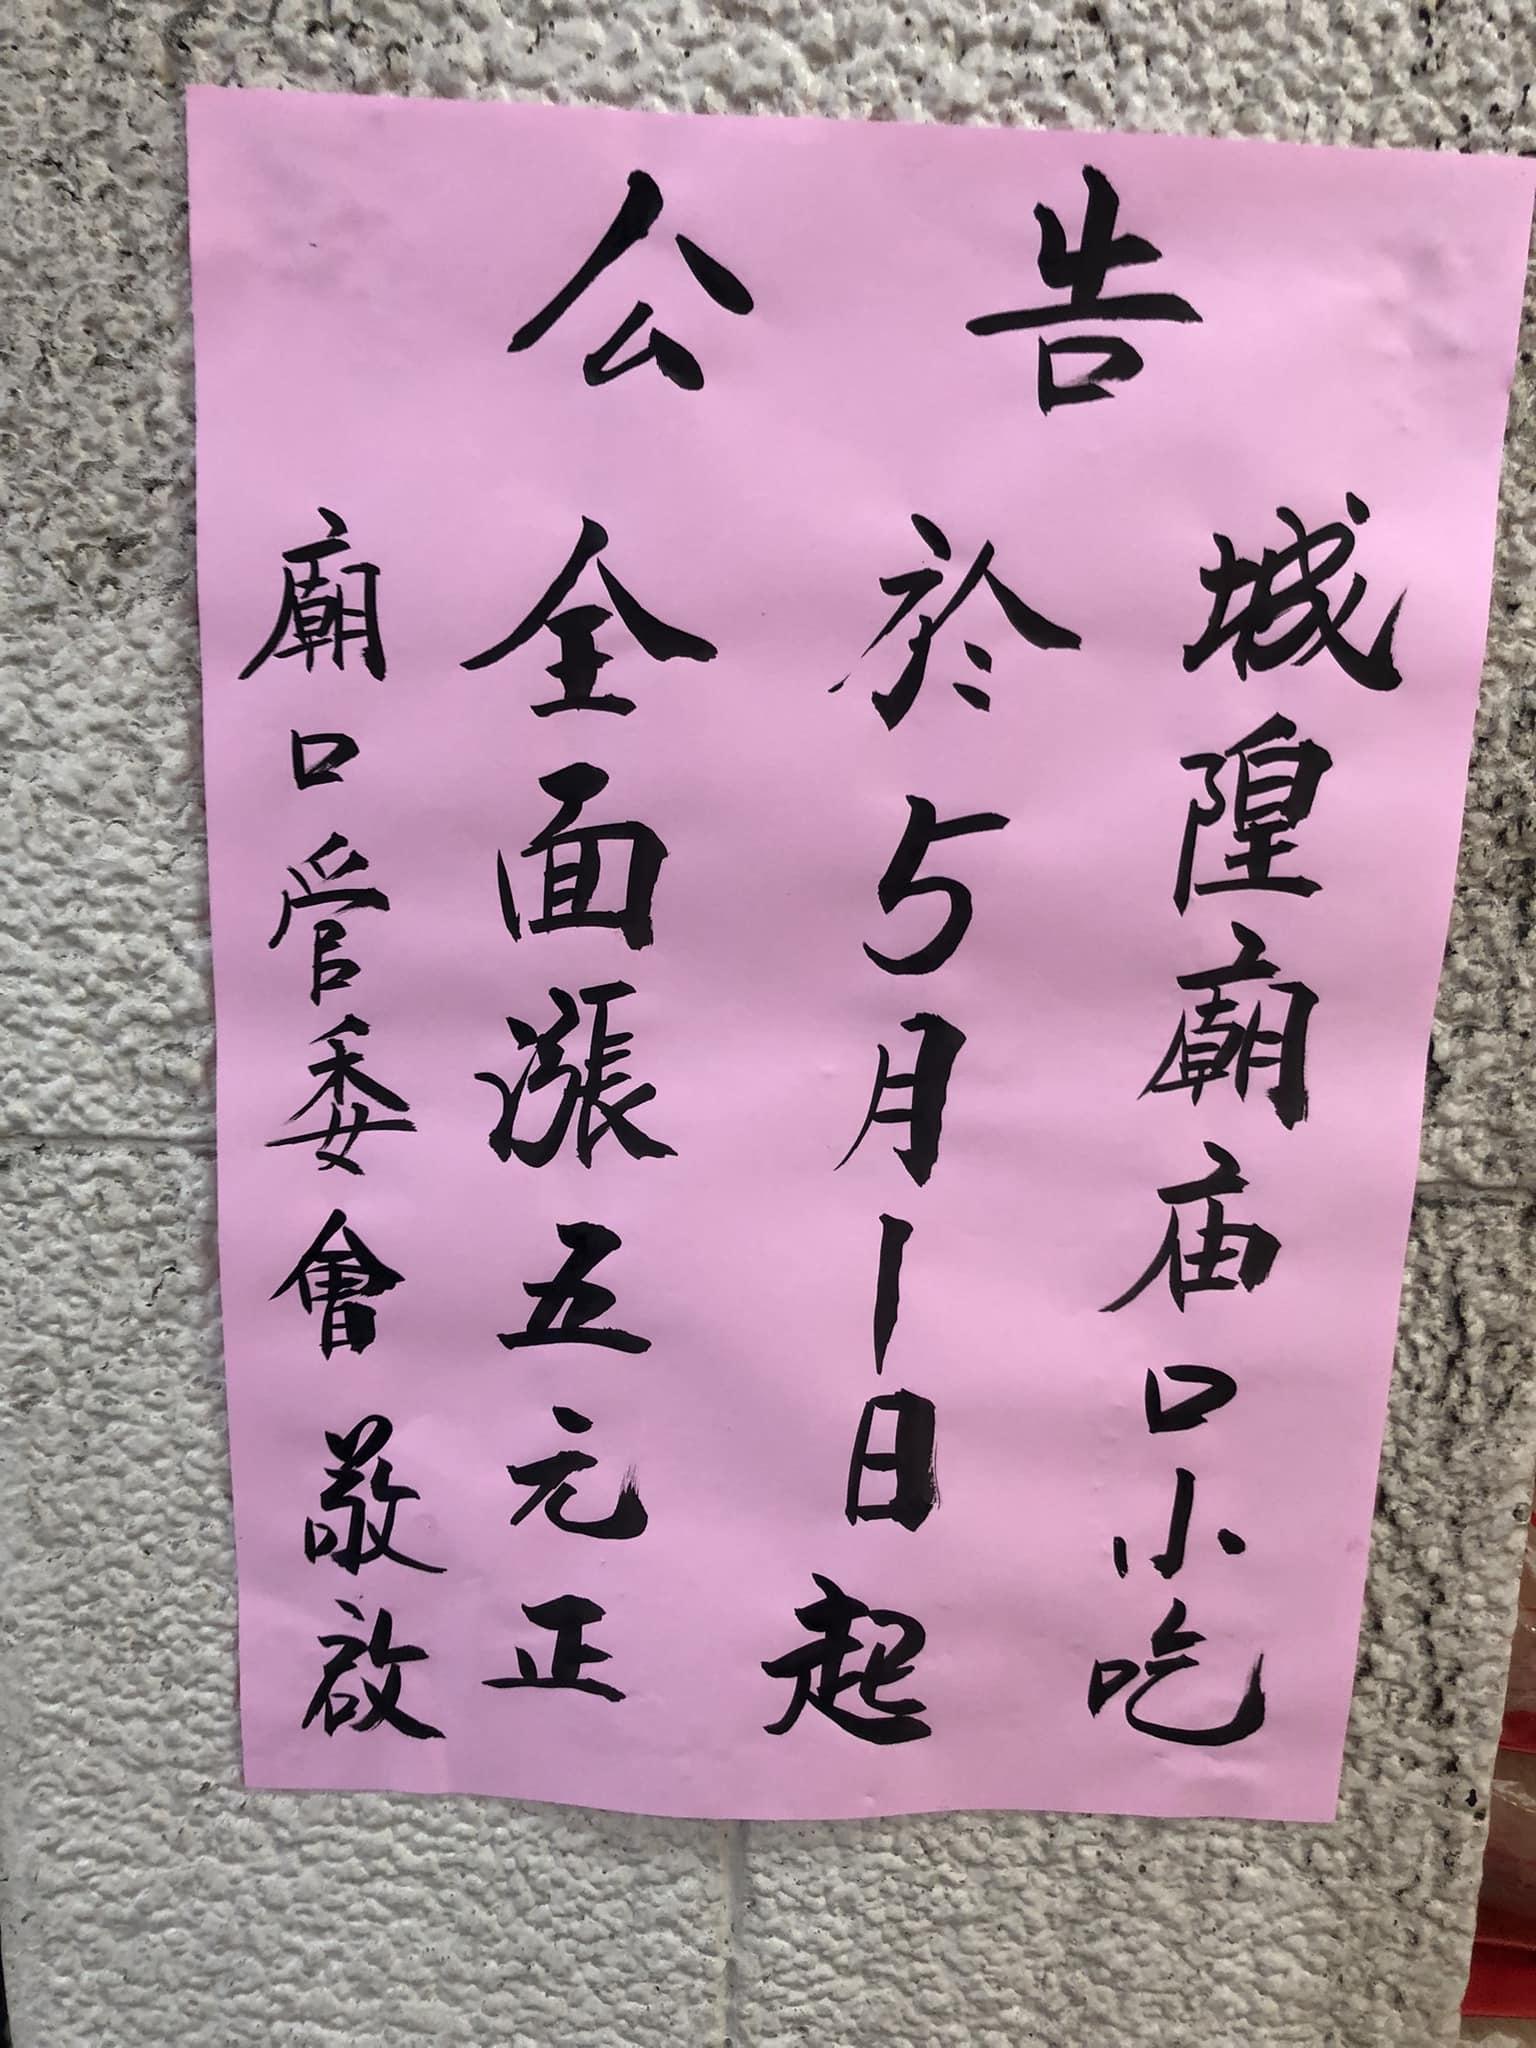 公告
城隍廟庙口小吃
於5月1日起
全面漲五元正
廟口管委會 敬啟